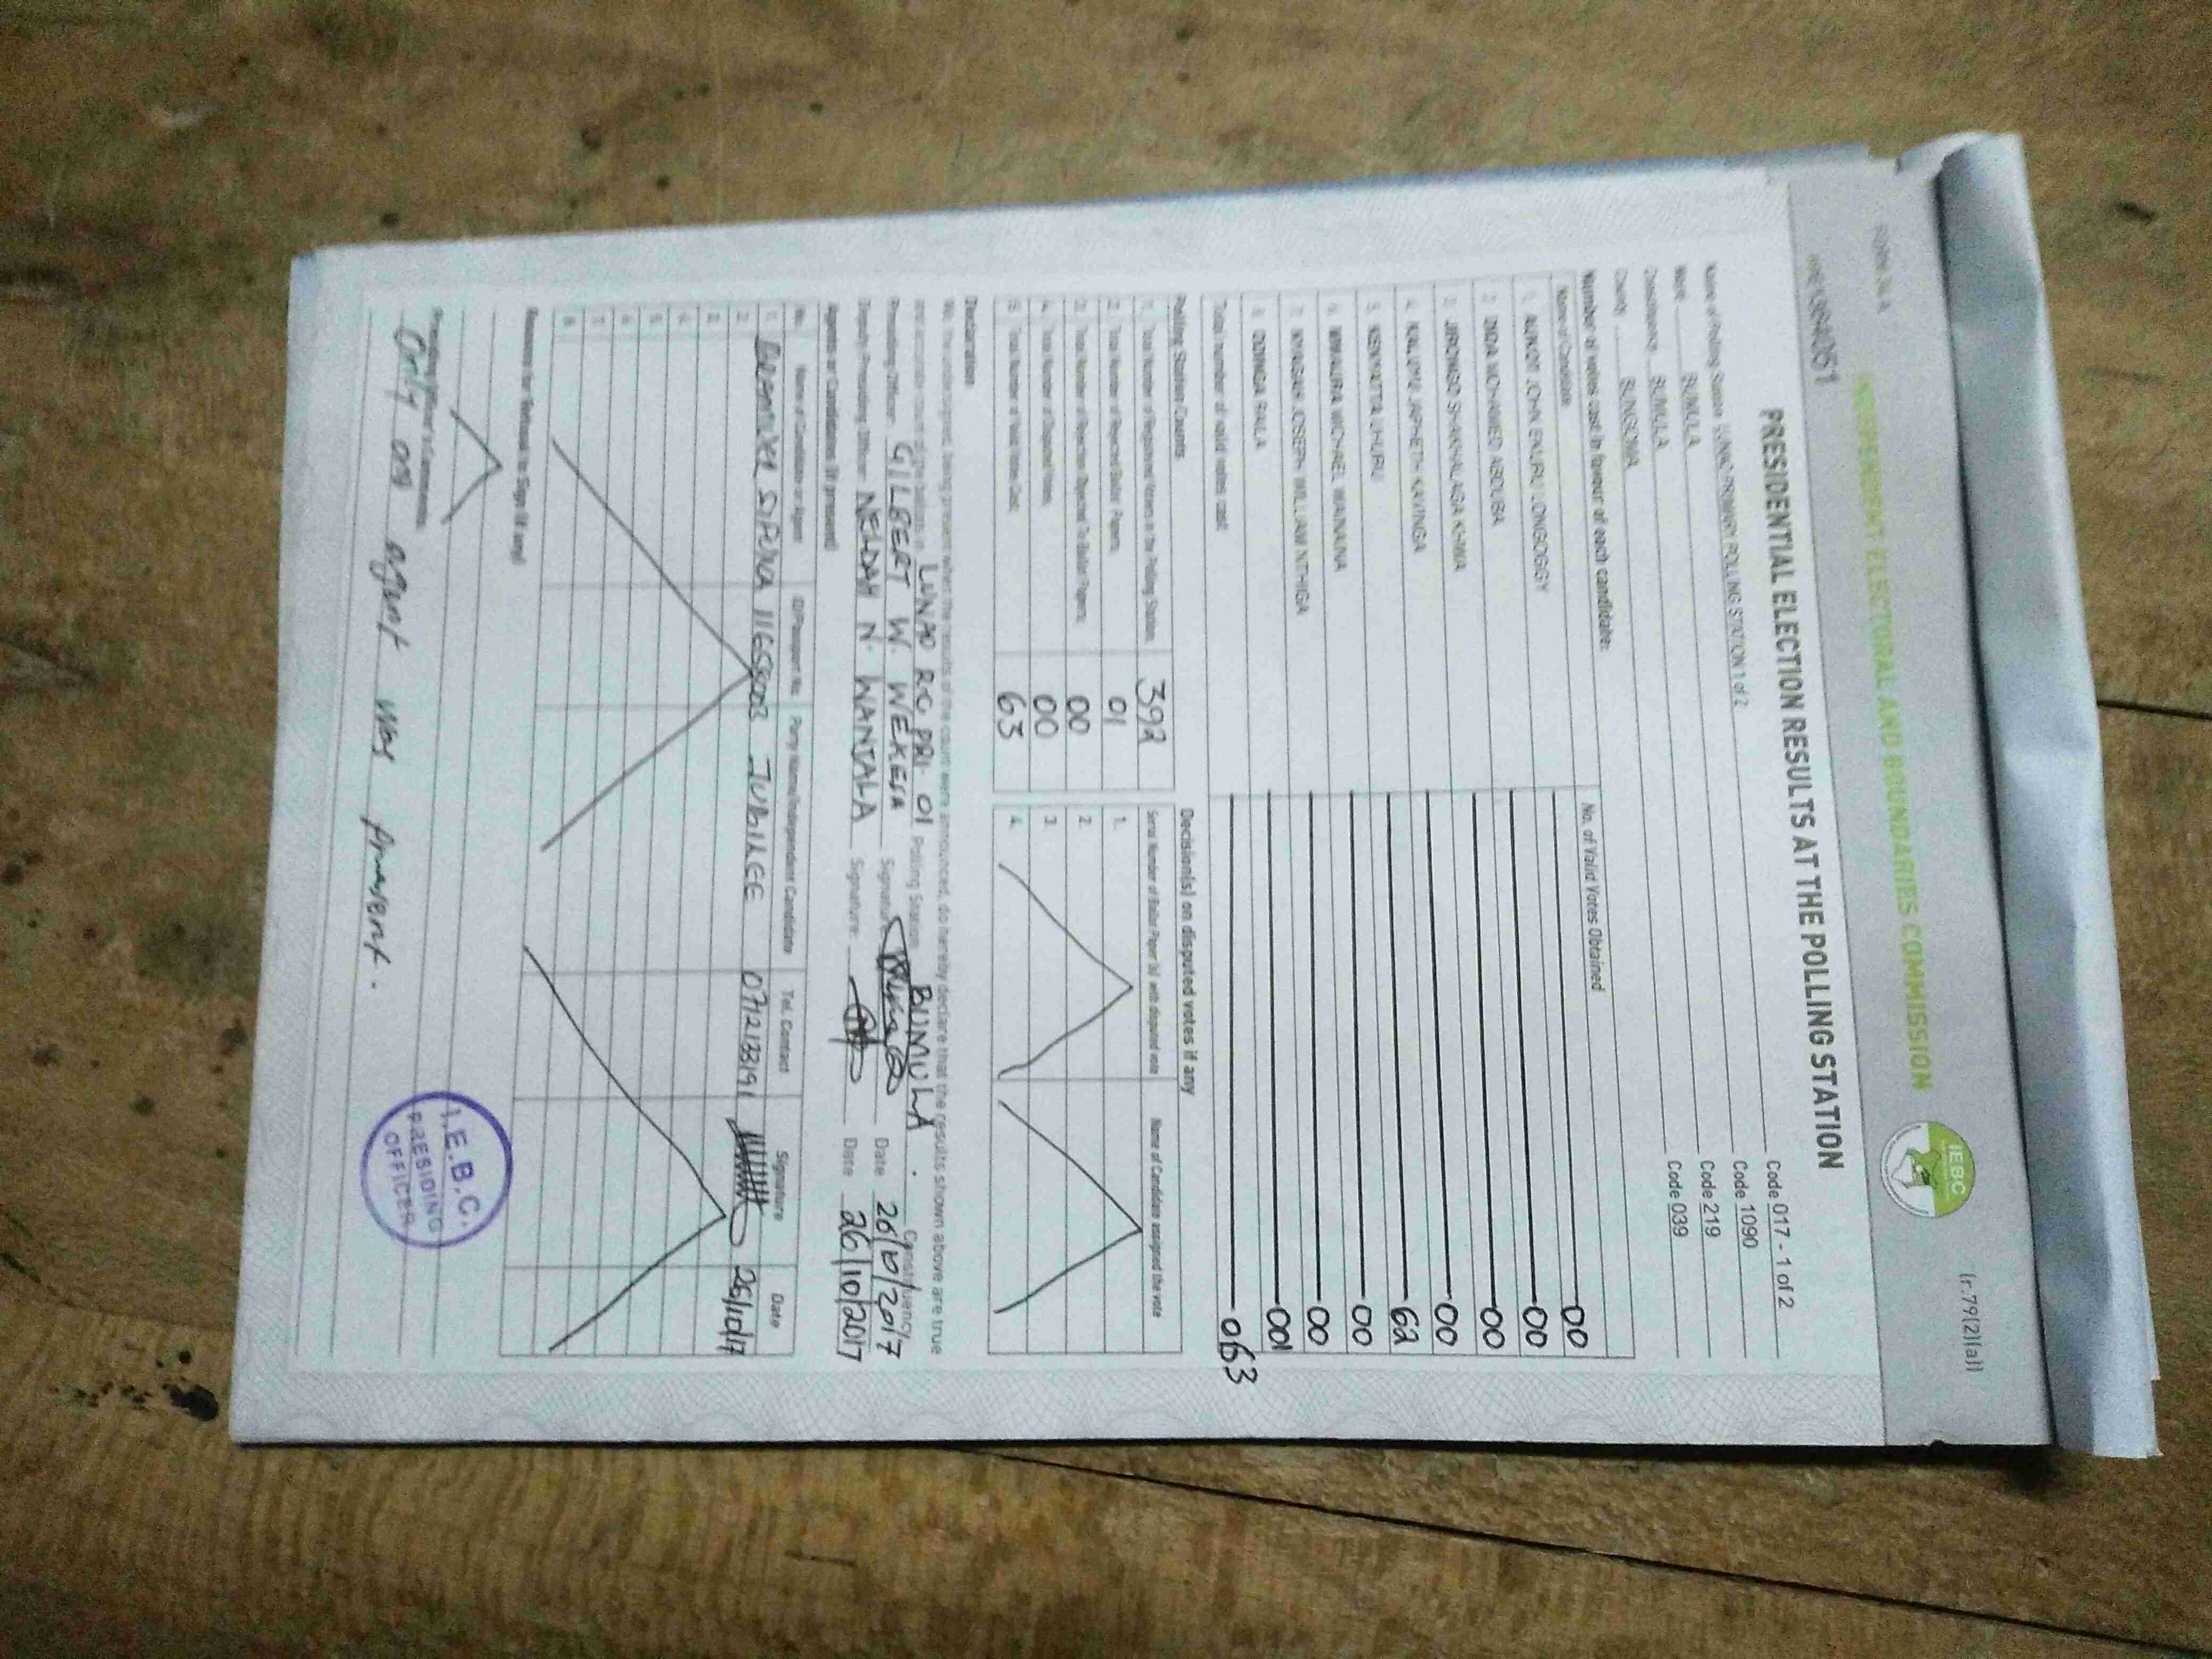 FORM 34 A
(r.79(2)(a))
INDEPENDENT ELECTORAL AND BOUNDARIES COMMISSION
IEBC
PRESIDENTIAL ELECTION RESULTS AT THE POLLING STATION
Name of Polling Station LUNAO PRIMARY POLLING STATION 1 of 2 Code 017 - 1 of 2
Ward BUMULA Code 1090
Constituency BUMULA Code 219
County BUNGOMA Code 039
Number of votes cast in favour of each candidate:
Name of Candidate No. of Valid Votes Obtained
00
1. AUKOT JOHN EKURU LONGOGGY 00
2. DIDA MOHAMED ABDUBA 00
3. JIRONGO SHAKHALAGA KHWA 00
4. KALUYU JAPHETH KAVINGA 62
5. KENYATTA UHURU 00
6. MWAURA MICHAEL WAINAINA 00
7. NYAGAH JOSEPH WILLIAM NTHIGA 001
8. ODINGA RAILA
Total number of valid votes cast 063
Polling Station Counts
1. Total Number of Registered Voters in the Polling Station 392
2. Total Number of Rejected Ballot Papers 01
3. Total Number of Rejection Objected To Ballot Papers 00
4. Total Number of Disputed Votes 00
5. Total Number of Valid Votes Cast 63
Decision(s) on disputed votes if any
Serial Number of Ballot Paper (s) with disputed vote Name of Candidate assigned the vote
1.
2.
3.
4.
Declaration
We, the undersigned, being present when the results of the count were announced, do hereby declare that the results shown above are true
and accurate count of the ballots in LUNAO R.C PRI- 01 Polling Station BUMULA Constituency
Presiding Officer GILBERT W. WEKESA Signature Date 26/10/2017
Deputy Presiding Officer NELDAH N. WANJALA Signature Date 26/10/2017
Agents or Candidates (if present)
No. Name of Candidate or Agent ID/Passport No. Party Name/Independent Candidate Tel. Contact Signature Date
1. SIFUNA JUBILEE 0712133191 26/10/17
2.
3.
4.
5.
6.
7.
8.
Reasons for Refusal to Sign (if any)
Presiding Officer's Comments
Only one agent was present.
I.E.B.C.
PRESIDING
OFFICER